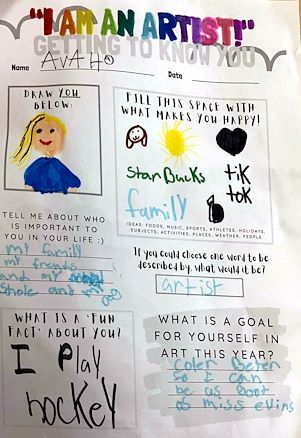 "I AM AN ARTIST!"
GETTING TO KNOW YOU
Name AvA H Date
DRAW YOU
BELOW:
FILL THIS SPACE WITH
WHAT MAKES YOU HAPPY!
StarBucks
tik
tok
family
IDEAS: FOODS, MUSIC, SPORTS, ATHLETES, HOLIDAYS,
SUBJECTS, ACTIVITIES, PLACES, WEATHER, PEOPLE
TELL ME ABOUT WHO
IS IMPORTANT TO
YOU IN YOUR LIFE :)
my family
my friends
and my
and my
If you could choose one word to be
described by, what would it be?
artist
WHAT IS A 'FUN
FACT' ABOUT YOU?
I Play
hocKeY
WHAT IS A GOAL
FOR YOURSELF IN
ART THIS YEAR?
coler Beter
so I can
be as
as miss evins